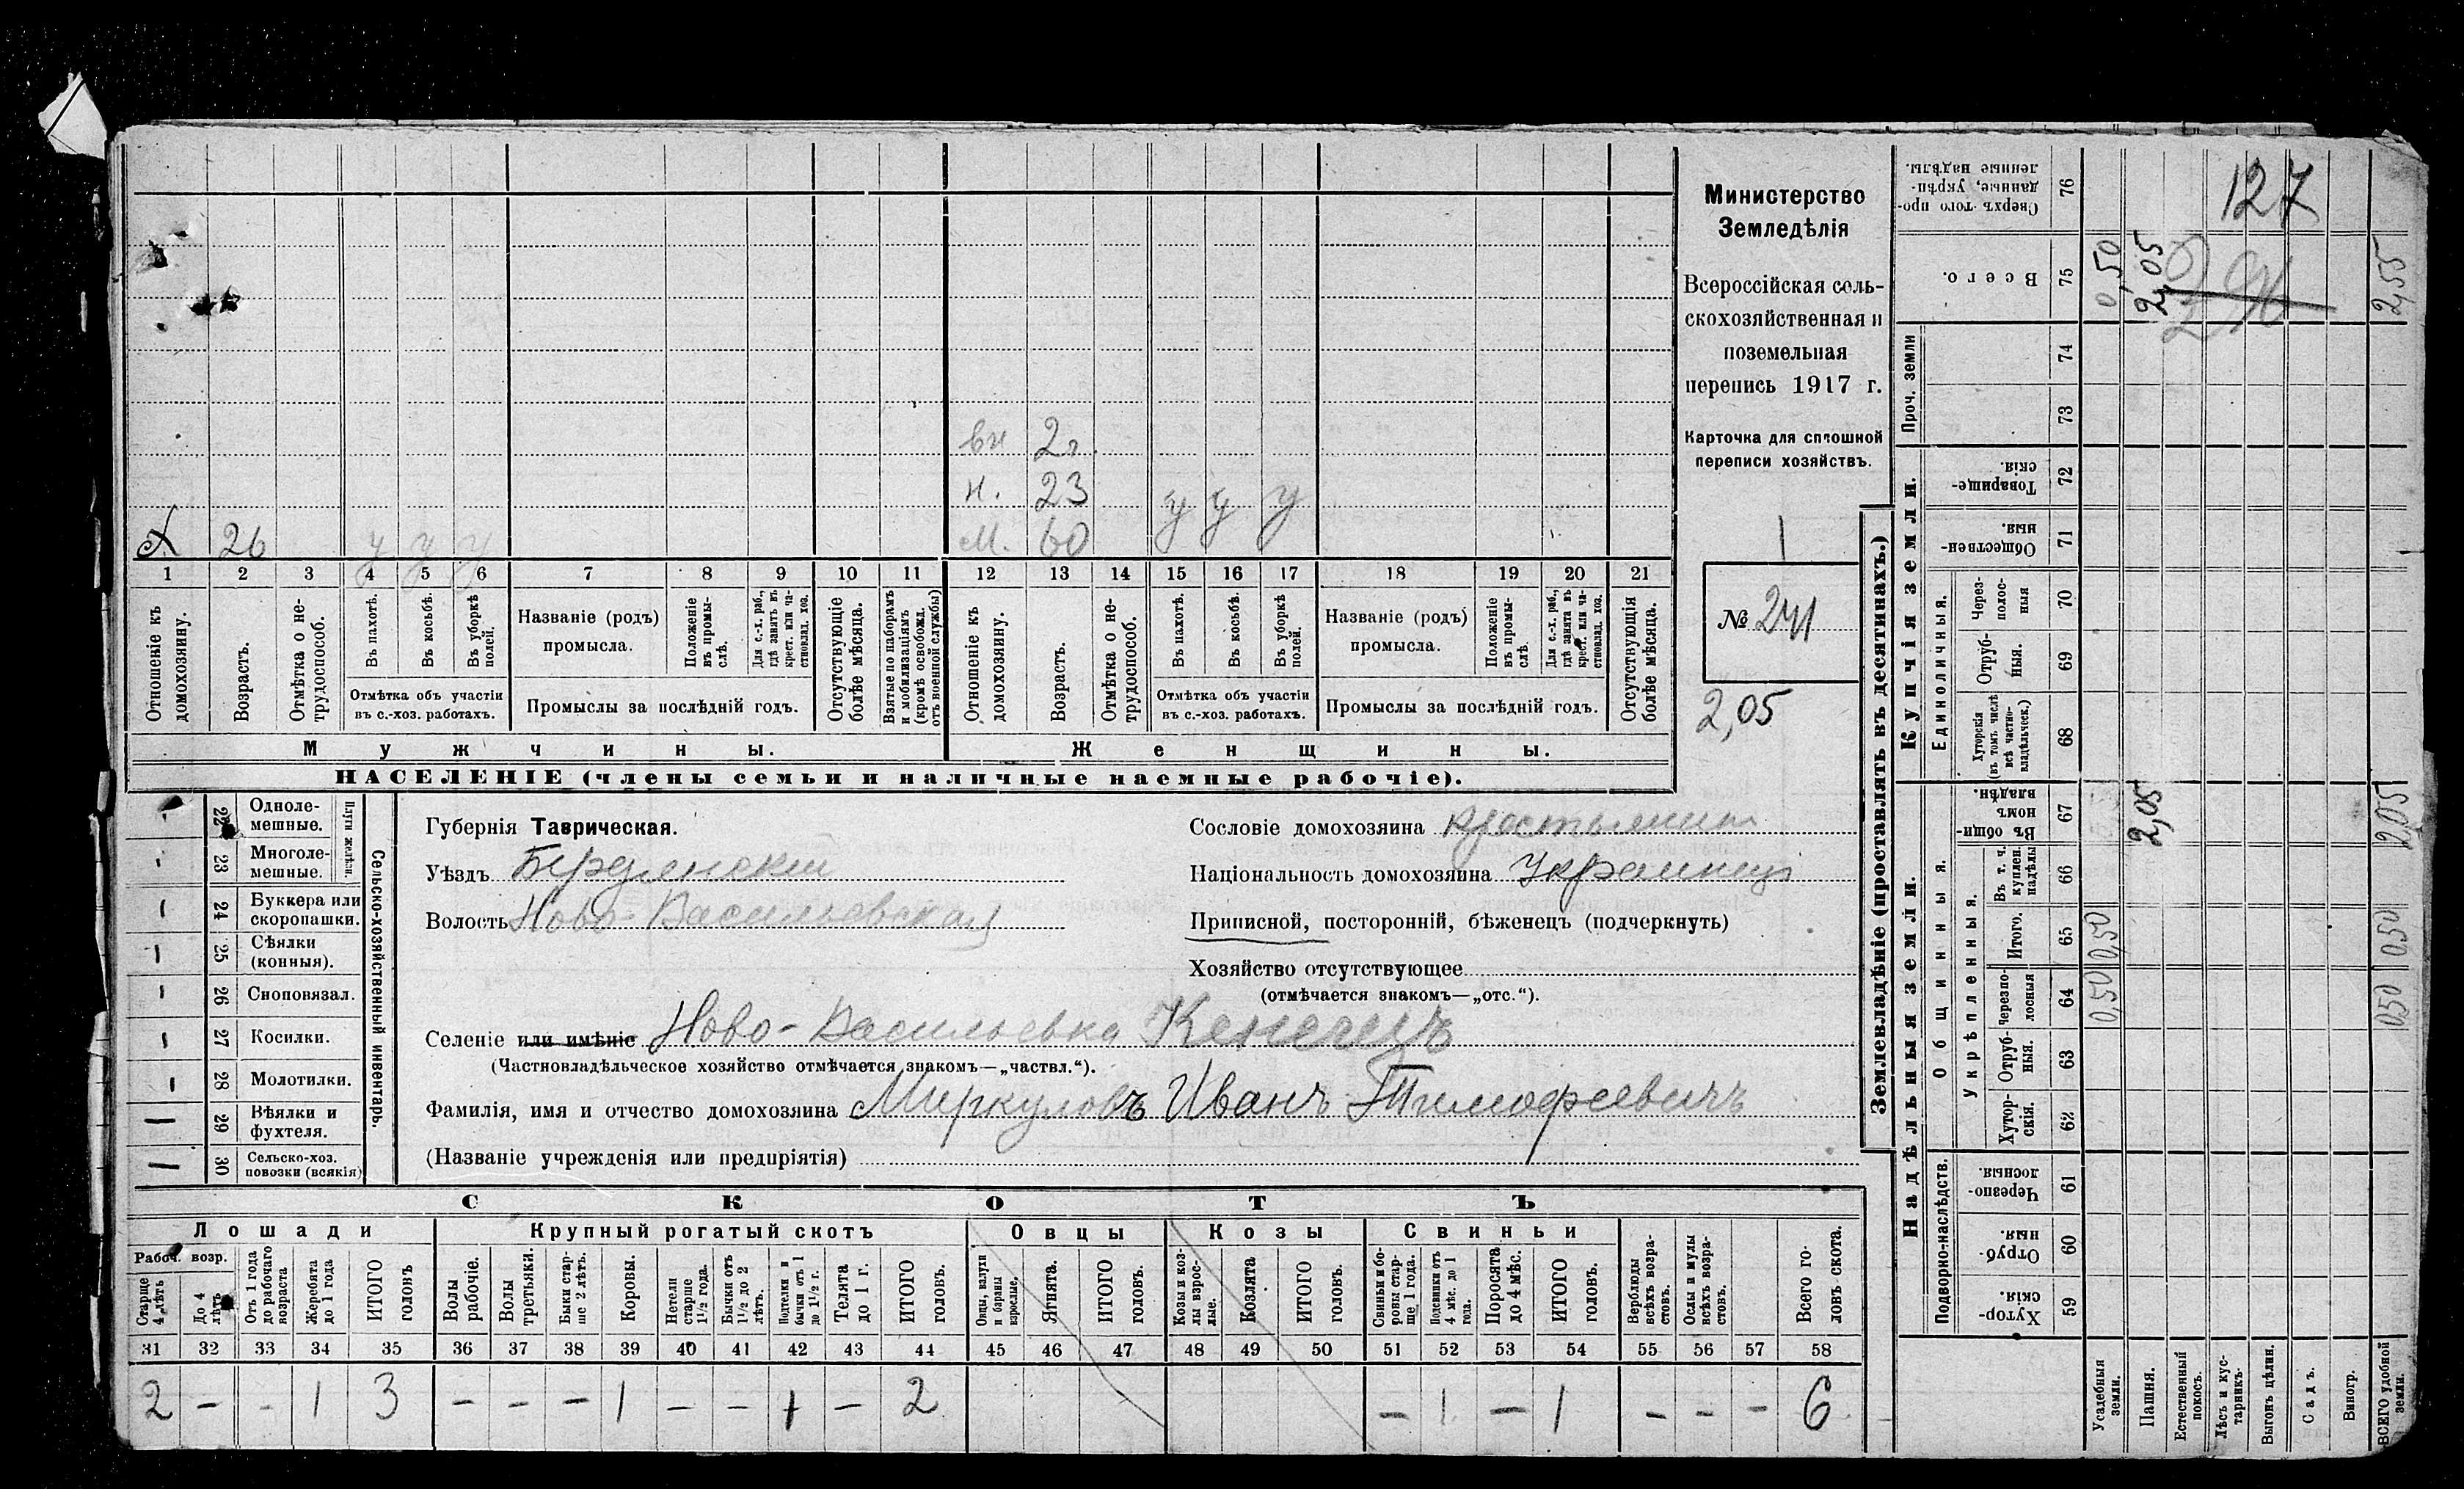 вн 2 г.
н. 23 у у у
х 26 у у у м. 60
1 2 3 4 5 6 7 8 9 10 11 12 13 14 15 16 17 18 19 20 21
Отношеніе къ домохозяину.
Возрастъ.
Отмѣтка о не-
трудоспособ.
Въ пахотѣ.
Въ косьбѣ.
Въ уборкѣ полей.
Отмѣтка объ участіи
въ с.-хоз. работахъ.
Названіе (родъ)
промысла.
Положеніе въ промы-
слѣ.
Для с.-х. раб., гдѣ занятъ въ крест. или ча-
стновлад. хоз.
Промыслы за послѣдній годъ.
Отсутствующіе болѣе мѣсяца.
Взятые по наборамъ и мобилизаціямъ (кромѣ освобожд. отъ военной службы)
Отношеніе къ домохозяину.
Возрастъ.
Отмѣтка о не-
трудоспособ.
Въ пахотѣ.
Въ косьбѣ.
Въ уборкѣ полей.
Отмѣтка объ участіи
въ с.-хоз. работахъ.
Названіе (родъ)
промысла.
Положеніе въ промы-
слѣ.
Для с.-х. раб., гдѣ занята въ крест. или ча-
стновлад. хоз.
Промыслы за послѣдній годъ.
Отсутствующія болѣе мѣсяца.
Мужчины.
Женщины.
НАСЕЛЕНІЕ (члены семьи и наличные наемные рабочіе).
Министерство
Земледѣлія
Всероссійская сель-
скохозяйственная и
поземельная
перепись 1917 г.
Карточка для сплошной
переписи хозяйствъ.
1
№ 241
2,05
22 Одноле-
мешные.
23 Многоле-
мешные.
Плуги желѣзн.
24 Буккера или
скоропашки.
25 Сѣялки
(конныя).
26 Сноповязал.
27 Косилки.
28 Молотилки.
29 Вѣялки и
фухтеля.
30 Сельско-хоз.
повозки (всякія)
Сельско-хозяйственный инвентарь.
Губернія Таврическая.
Уѣздъ Бердянскій
Волость Ново-Васильевская
Сословіе домохозяина крестьянинъ
Національность домохозяина Украинецъ
Приписной, посторонній, бѣженецъ (подчеркнуть)
Хозяйство отсутствующее
(отмѣчается знакомъ—„отс.“).
Селеніе или имѣніе Ново-Васильевка
(Частновладѣльческое хозяйство отмѣчается знакомъ—„частвл.“).
Фамилія, имя и отчество домохозяина Миркуловъ Иванъ Тимофеевичъ
(Названіе учрежденія или предпріятія)
СКОТЪ
Лошади
Рабоч. возр.
Старше 4 лѣтъ
До 4 лѣтъ
Отъ 1 года до рабочаго возраста
Жеребята до 1 года
ИТОГО головъ
Крупный рогатый скотъ
Волы рабочіе.
Волы третьяки.
Быки стар-
ше 2 лѣтъ.
Коровы.
Нетели старше 1½ года.
Бычки отъ 1½ до 2 лѣтъ.
Подтелки и бычки отъ 1 до 1½ г.
Телята до 1 г.
ИТОГО головъ.
Овцы
Овцы, валухи и бараны взрослые.
Ягнята.
ИТОГО головъ.
Козы
Козы и коз-
лы взрос-
лые.
Козлята
ИТОГО головъ.
Свиньи
Свиньи и бо-
ровы стар-
ше 1 года.
Подсвинки отъ 4 мѣс. до 1 года.
Поросята до 4 мѣс.
ИТОГО головъ.
Верблюды всѣхъ возра-
стовъ.
Ослы и мулы всѣхъ возра-
стовъ.
Всего го-
ловъ скота.
31 32 33 34 35 36 37 38 39 40 41 42 43 44 45 46 47 48 49 50 51 52 53 54 55 56 57 58
2 – – 1 3 – – – 1 – – 1 – 2 – 1 – 1 – – – 6
Землевладѣніе (проставлять въ десятинахъ.)
Надѣльныя земли.
Купчія земли.
Проч. земли
Подворно-наслѣдств.
Общинныя.
Укрѣпленныя.
Единоличныя.
Сверхъ того про-
данные, укрѣп-
ленные надѣлы. 76
Всего. 75
74
73
Товарище-
скія. 72
Обществен-
ныя. 71
Через-
полос-
ныя 70
Отруб-
ныя. 69
Хуторскія (въ томъ числѣ всѣ частно-
владѣльческ.) 68
Въ общин-
номъ владѣн. 67
Въ т. ч. куплен. надѣлы 66
Итого. 65
Черезпо-
лосныя 64
Отруб-
ныя. 63
Хутор-
скія. 62
Черезпо-
лосныя. 61
Отруб-
ныя. 60
Хутор-
скія. 59
127
0,50 2,05 2,55
2,05 2,05
0,50 0,50
0,50 0,50
Усадебныя земли.
Пашня.
Естественный покосъ.
Лѣсъ и кус-
тарникъ.
Выгонъ цѣлин.
Садъ.
Виногр.
ВСЕГО удобной земли.